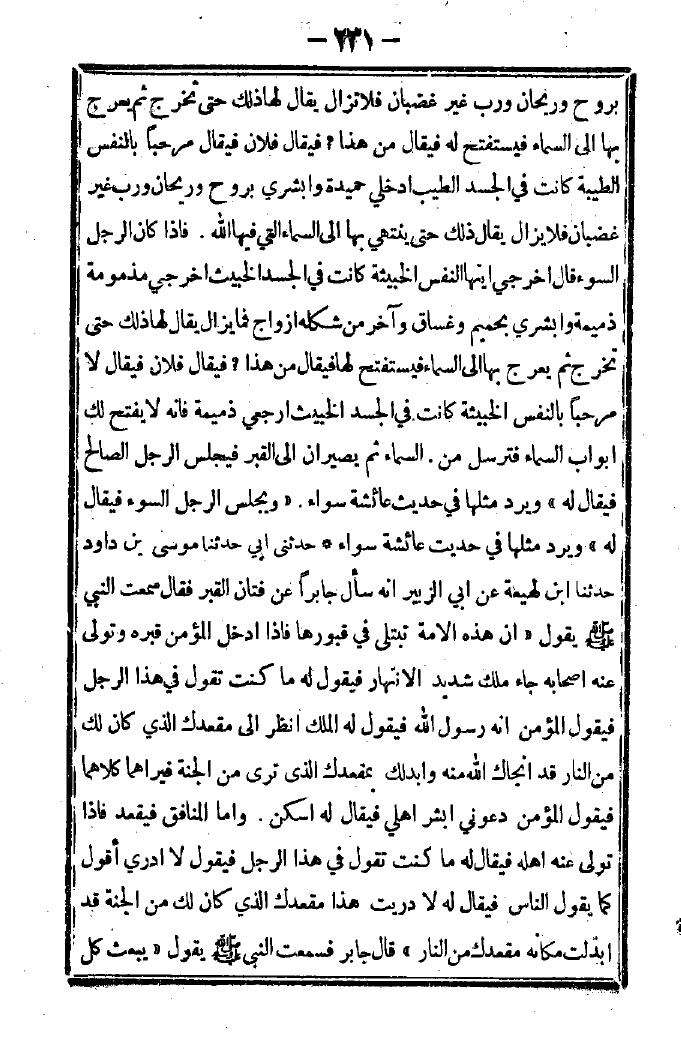 — ٢٣١ —
بروح وريحان ورب غير غضبان فلا تزال يقال لها ذلك حتى تخرج ثم يعرج
بها الى السماء فيستفتح له فيقال من هذا ؟ فيقال فلان فيقال مرحباً بالنفس
الطيبة كانت في الجسد الطيب ادخلي حميدة وابشري بروح وريحان ورب غير
غضبان فلا يزال يقال ذلك حتى ينتهي بها الى السماء التي فيها الله . فاذا كان الرجل
السوء قال اخرجي ايتها النفس الخبيثة كانت في الجسد الخبيث اخرجي مذمومة
ذميمة وابشري بحميم وغساق وآخر من شكله ازواج فما يزال يقال لها ذلك حتى
تخرج ثم يعرج بها الى السماء فيستفتح لها فيقال من هذا ؟ فيقال فلان فيقال لا
مرحباً بالنفس الخبيثة كانت في الجسد الخبيث ارجعي ذميمة فانه لا يفتح لك
ابواب السماء فترسل من . السماء ثم يصيران الى القبر فيجلس الرجل الصالح
فيقال له » ويرد مثلها في حديث عائشة سواء . « ويجلس الرجل السوء فيقال
له » ويرد مثلها في حديت عائشة سواء * حدثنى ابي حدثنا موسى بن داود
حدثنا ابن لهيعة عن ابي الزبير انه سأل جابراً عن فتان القبر فقال سمعت النبي
ﷺ يقول « ان هذه الامة تبتلى في قبورها فاذا ادخل المؤمن قبره وتولى
عنه اصحابه جاء ملك شديد الانتهار فيقول له ما كنت تقول في هذا الرجل
فيقول المؤمن انه رسول الله فيقول له الملك انظر الى مقعدك الذي كان لك
من النار قد انجاك الله منه وابدلك بمقعدك الذى ترى من الجنة فيراهما كلاهما
فيقول المؤمن دعوني ابشر اهلي فيقال له اسكن . واما المنافق فيقعد فاذا
تولى عنه اهله فيقال له ما كنت تقول في هذا الرجل فيقول لا ادري أقول
كما يقول الناس فيقال له لا دريت هذا مقعدك الذي كان لك من الجنة قد
ابدلت مكانه مقعدك من النار » قال جابر فسمعت النبي ﷺ يقول « يبعث كل